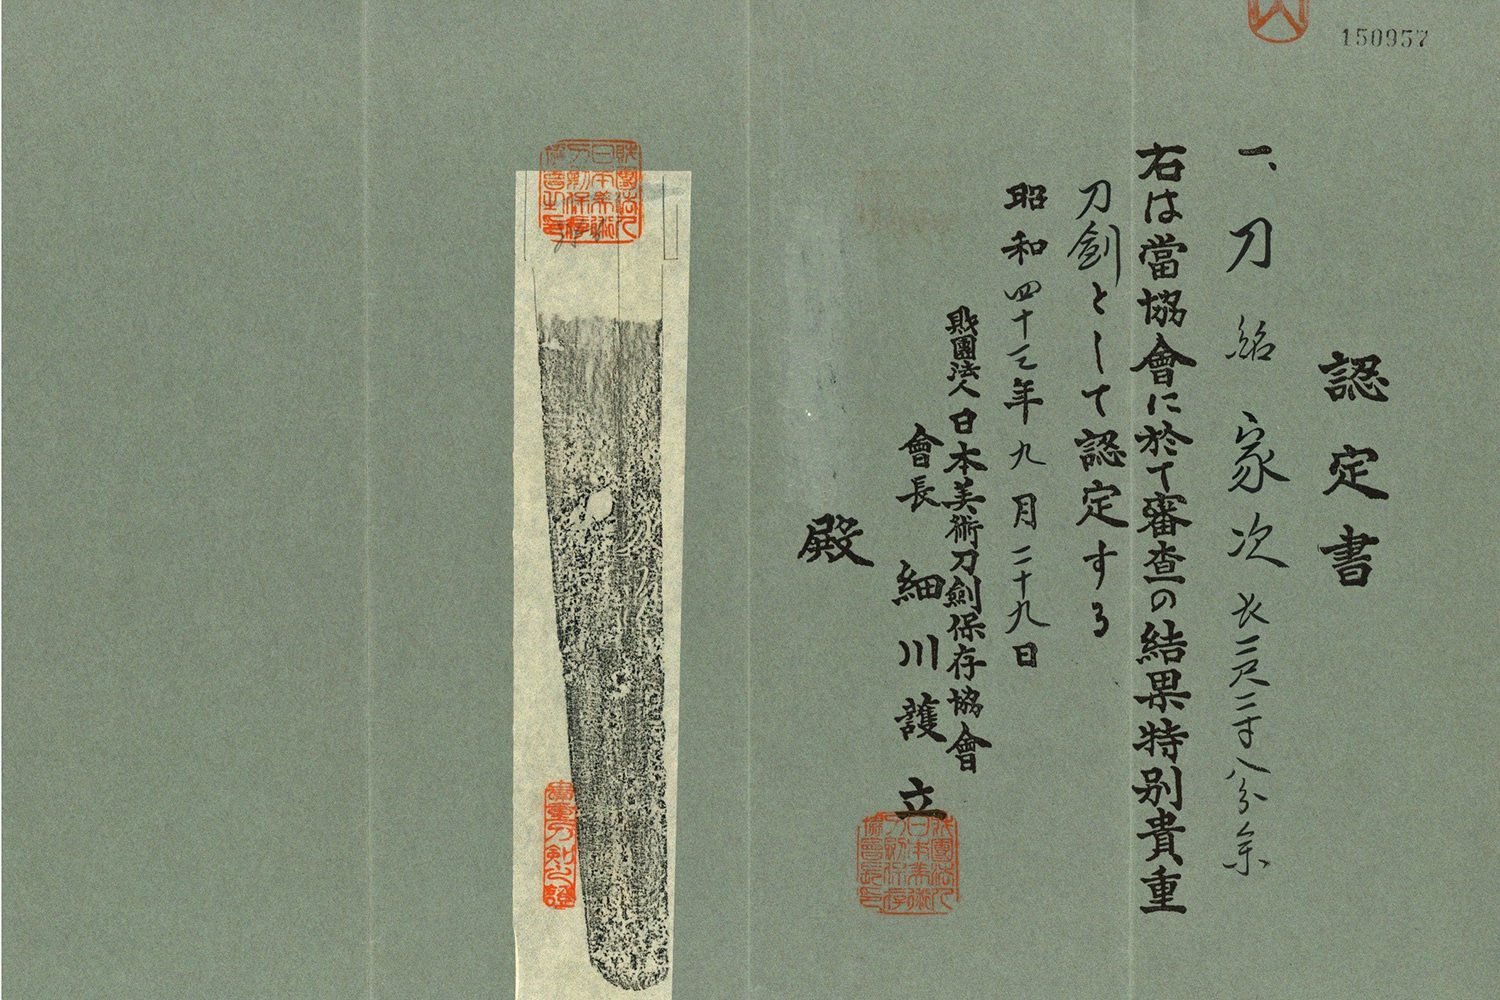 150957
認定書
一、刀 銘 家次 長二尺二寸八分余
右は當協會に於て審査の結果特別貴重
刀劍として認定する
昭和四十三年九月二十九日
財團法人日本美術刀劍保存協會
會長 細川護立
殿
財團法人日本美術刀劍保存協會長之印
財團法人日本美術刀劍保存協會之印
貴重刀剣之證